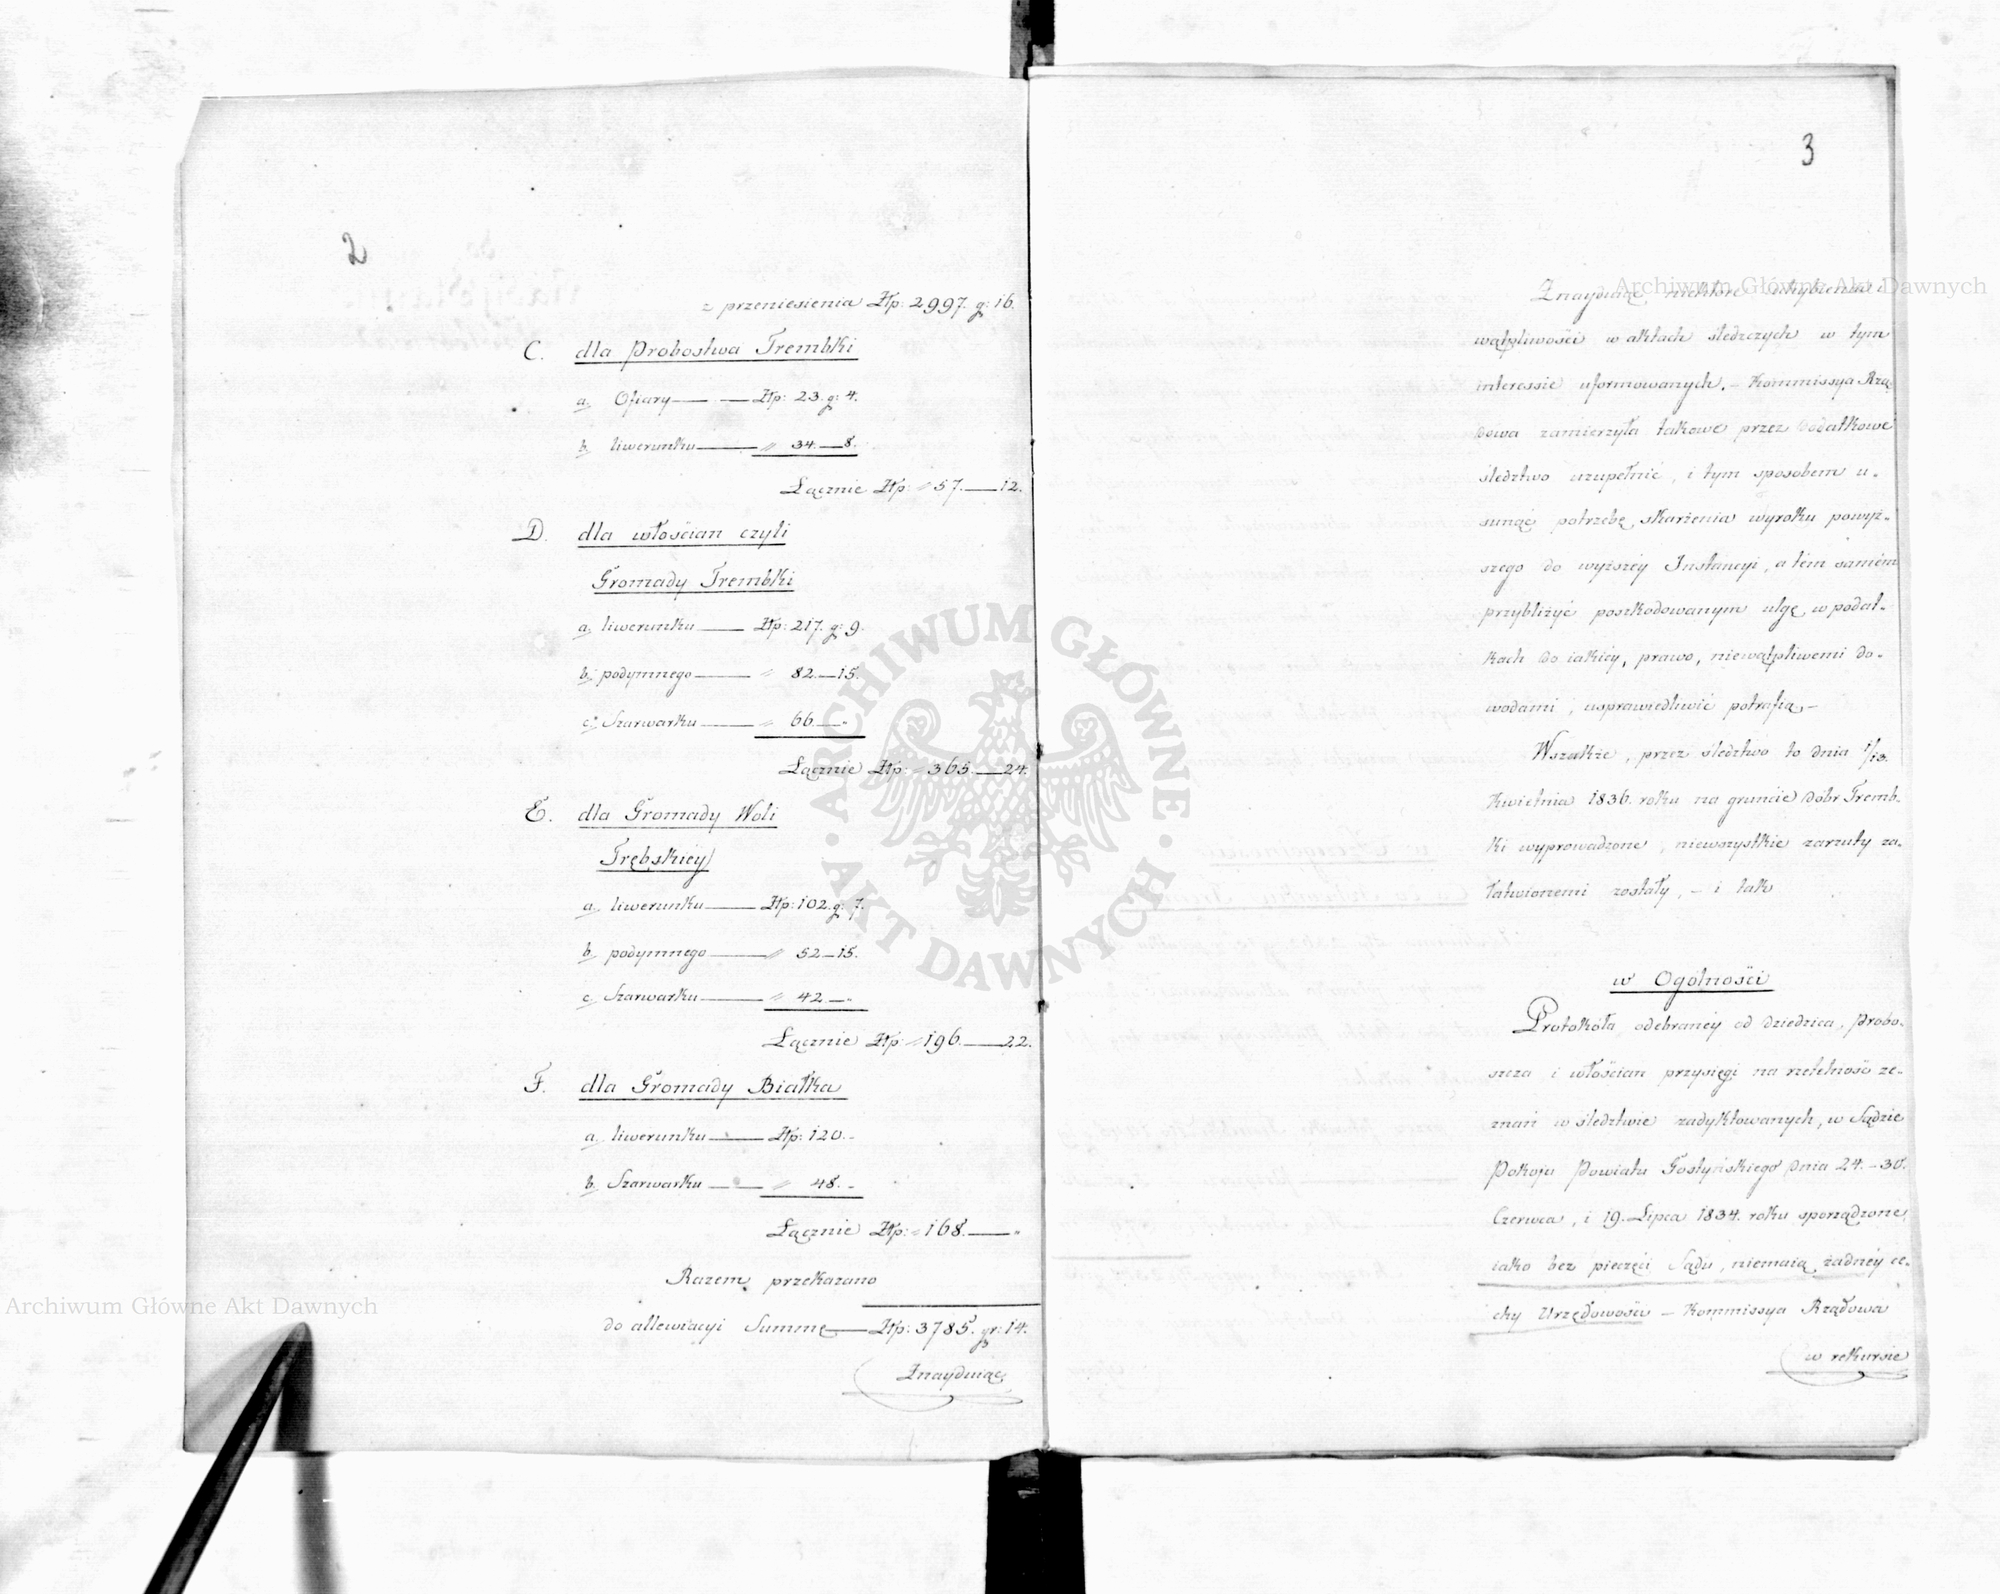 2
z przeniesienia Złp: 2997. g: 16.
C. dla Probostwa Trembki
a. Ofiary — — Złp: 23. g: 4.
b. liwerunku — „ 34. — 8.
Łącznie Złp: „ 57. — 12.
D. dla włościan czyli
Gromady Trembki
a. liwerunku — Złp: 217. g: 9.
b. podymnego — „ 82. — 15.
c. Szarwarku — „ 66 — „
Łącznie Złp: „ 365. — 24.
E. dla Gromady Woli
Trębskiey
a. liwerunku — Złp: 102. g: 7.
b. podymnego — „ 52 — 15.
c. Szarwarku — „ 42. — „
Łącznie Złp: „ 196. — 22.
F. dla Gromady Białka
a. liwerunku — Złp: 120. -
b. Szarwarku — „ 48. -
Łącznie Złp: „ 168. — „
Razem przekazano
do allewiacyi Summę — Złp: 3785. gr: 14.
Znayduiąc
3
Znayduiąc niektóre uchybienia i
wątpliwości w aktach śledczych w tym
interessie uformowanych. – Kommissya Rzą-
dowa zamierzyła takowe przez dodatkowe
śledztwo uzupełnić, i tym sposobem u-
sunąć potrzebę skarżenia wyroku powyż-
szego do wyższéy Instancyi, a tém samém
przybliżyć poszkodowanym ulgę w podat-
kach do iakiéy, prawo, niewątpliwemi do-
wodami, usprawiedliwić potrafią –
Wszakże, przez śledztwo to dnia 1/13.
Kwietnia 1836. roku na gruncie dóbr Tremb-
ki wyprowadzone, niewszystkie zarzuty za-
łatwionemi zostały, – i tak
w Ogólności
Protokóła odebranéy od dziedzica, Probo-
szcza i włościan przysięgi na rzetelność ze-
znań w śledztwie zadyktowanych, w Sądzie
Pokoju Powiatu Gostyńskiego dnia 24. – 30.
Czerwca, i 19. Lipca 1834. roku sporządzone,
iako bez pieczęci Sądu, niemaią żadnéy ce-
chy Urzędowości – Kommissya Rządowa
w rekursie
Archiwum Główne Akt Dawnych
Archiwum Główne Akt Dawnych
ARCHIWUM GŁÓWNE • AKT DAWNYCH •